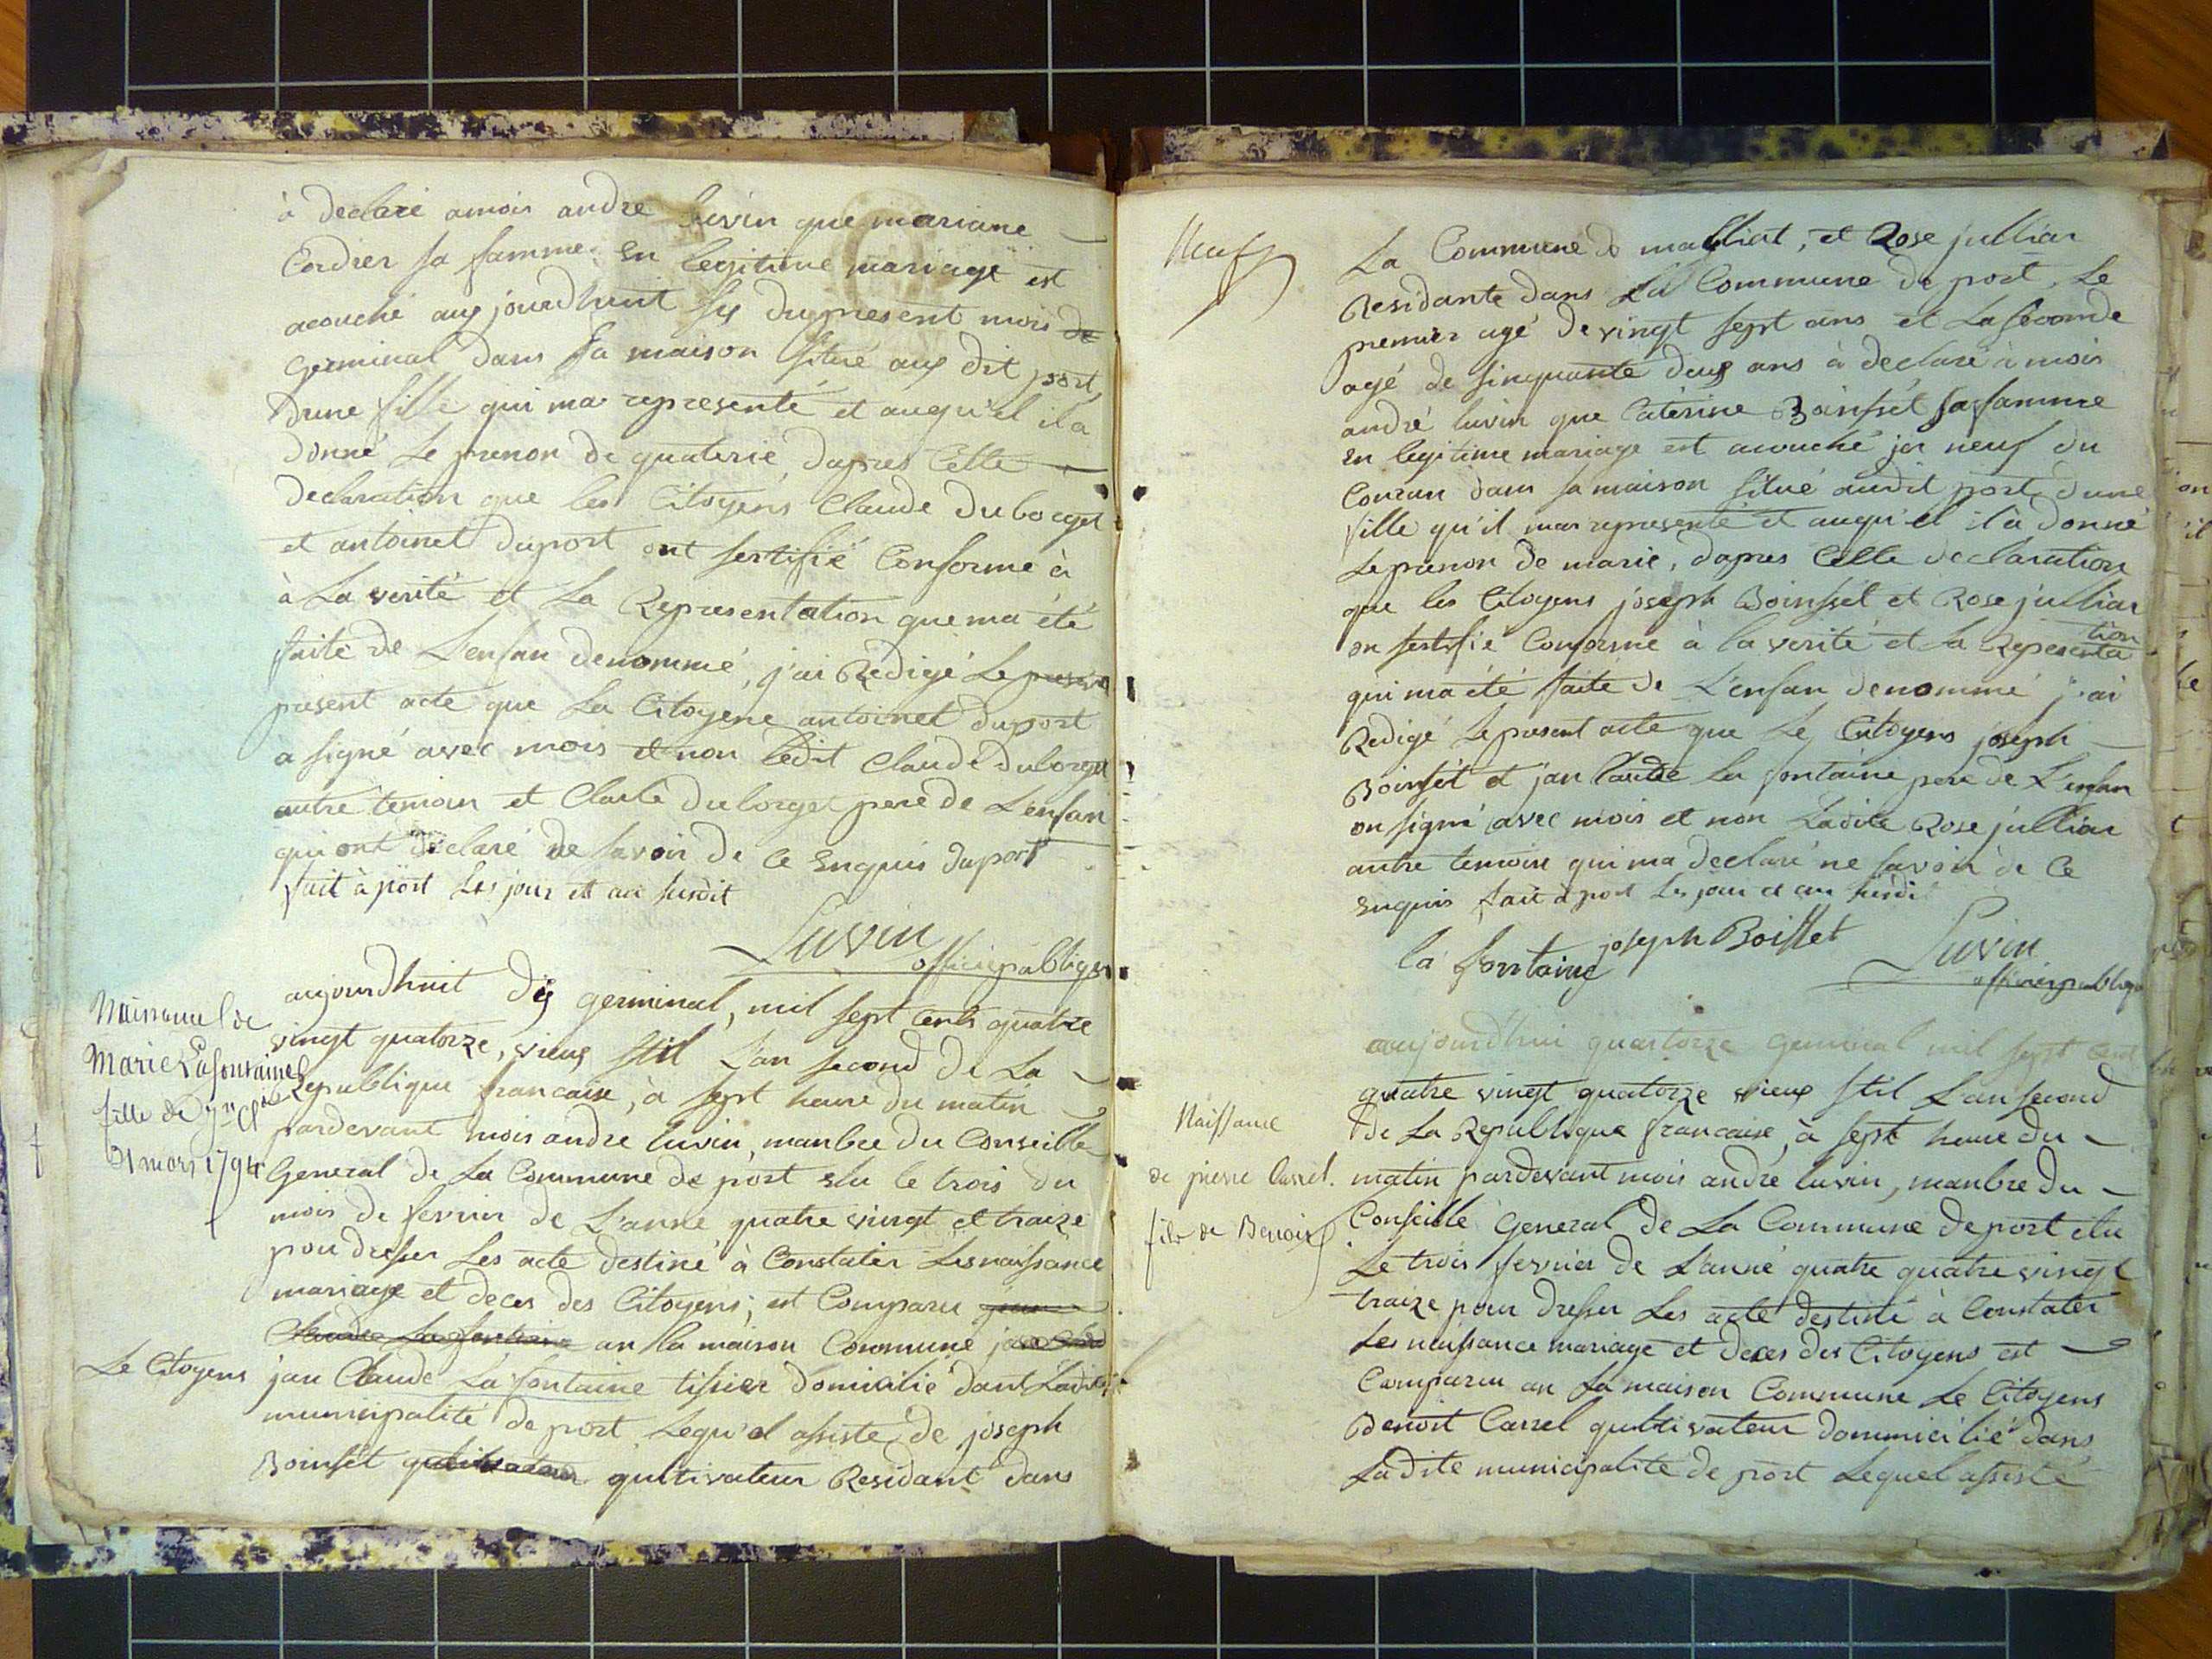 à declaré amois andre luvin que mariane
Cordier sa famme en legitime mariage est
acouché aux jourdhuit six du present mois de
germinal dans sa maison situé aux dit port,
dune fille qui ma representé et auqu'el il a
donné le prenon de quaterié, dapres Cette
declaration que les Citoyens Claude duborget
et antoinet duport ont sertifié Conforme à
à La verité et La Representation que ma été
faite de L'enfan denommé, j'ai Redigé Le
present acte que La Citoyene antoinet duport
à signé avec mois et non ledit Claude duborget
autre temoin et Claude duborget pere de L'enfan
qui ont declaré ne savoir de ce Enquis duport
fait à port Les jour et an susdit
Luvin
officié publique
Naissance de
Marie Lafontaine
fille de Jn Cl.
31 mars 1794
aujourdhuit dix germinal, mil sept cents quatre
vingt quatorze, vieux stil L'an second de La
Republique francaise, à sept heure du matin
pardevant mois andre luvin, manbre du Conseille
General de La Commune de port elu le trois du
mois de fevrier de L'anné quatre vingt et traize
pou dresser Les acte destiné à Constater Les naissance
mariage et deces des Citoyens, est Comparu
Claude La fontaine an la maison Commune
Le Citoyens jan Claude La fontaine tissier domicilié dans Ladite
municipalité de port Lequ'el assiste de joseph
Boinset qultivateur Residant dans
Neuf
La Commune de malliat, et Rose jullian
Residante dans La Commune de port, Le
premier agé de vingt sept ans et La seconde
agé de sinquante deux ans à declaré à mois
andré luvin que Caterine Boinssét sa famme
en legitime mariage est acouché jer neuf du
Couran dans sa maison situé audit port, dune
fille qu'il ma representé et auqu'el il à donné
Le prenon de marie, dapres Cette declaration
que les Citoyens joseph Boinssel et Rose jullian
on sertifié Conforme à la verité et la Representation
qui ma été faite de L'enfan denommé j'ai
Redigé Le present acte que Le Citoyens joseph
Boinsét et jan Claude La fontaine pere de L'enfan
on signé avec mois et non Ladite Rose jullian
autre temoin qui ma declaré ne savoir de Ce
Enquis fait à port Les jour et an susdi
la fontaine joseph Boisset Luvin
officié publique
Naissance
de pierre Carrel.
fils de Benoit
aujourdhui quatorze germinal mil sept cent
quatre vingt quatorze vieux stil L'an second
de La Republique francaise, à sept heure du
matin pardevant mois andré luvin, manbre du
Conseille General de La Commune de port elu
Le trois fevrier de L'anné quatre quatre vingt
traize pour dresser Les acte destiné à Constater
Les naissance mariage et deces des Citoyens est
Comparu an La maison Commune Le Citoyens
Benoit Carrel qultivateur dommicilié dans
Ladite municipalité de port Lequel assisté